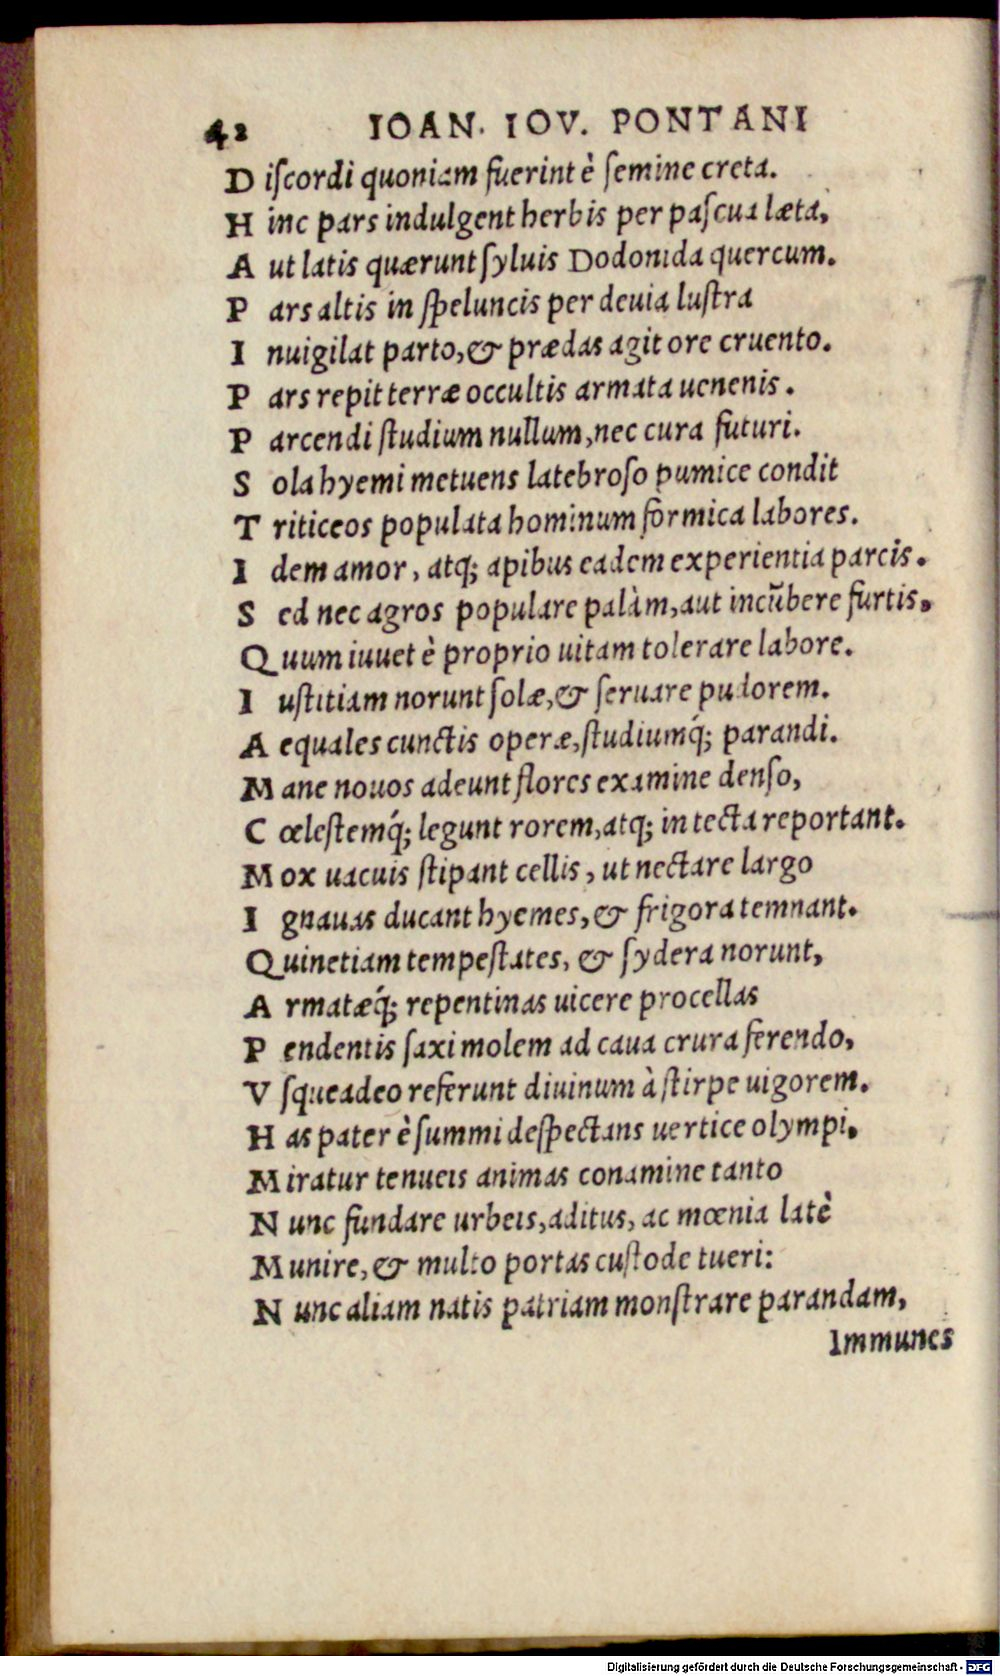 42 IOAN. IOV. PONTANI
D iſcordi quoniam fuerint è ſemine creta.
H inc pars indulgent herbis per paſcua læta,
A ut latis quærunt ſyluis Dodonida quercum.
P ars altis in ſpeluncis per deuia luſtra
I nuigilat parto, & prædas agit ore cruento.
P ars repit terræ occultis armata uenenis.
P arcendi ſtudium nullum, nec cura futuri.
S ola hyemi metuens latebroſo pumice condit
T riticeos populata hominum formica labores.
I dem amor, atq; apibus eadem experientia parcis.
S ed nec agros populare palàm, aut incūbere furtis,
Q uum iuuet è proprio uitam tolerare labore.
I uſtitiam norunt ſolæ, & ſeruare pudorem.
A equales cunctis operæ, ſtudiumq́; parandi.
M ane nouos adeunt flores examine denſo,
C œleſtemq́; legunt rorem, atq; in tecta reportant.
M ox uacuis ſtipant cellis, ut nectare largo
I gnauas ducant hyemes, & frigora temnant.
Q uinetiam tempeſtates, & ſydera norunt,
A rmatæq́; repentinas uicere procellas
P endentis ſaxi molem ad caua crura ferendo,
V ſqueadeo referunt diuinum à ſtirpe uigorem.
H as pater è ſummi deſpectans uertice olympi,
M iratur tenueis animas conamine tanto
N unc fundare urbeis, aditus, ac mœnia latè
M unire, & multo portas cuſtode tueri:
N unc aliam natis patriam monſtrare parandam,
Immunes
Digitalisierung gefördert durch die Deutsche Forschungsgemeinschaft - DFG